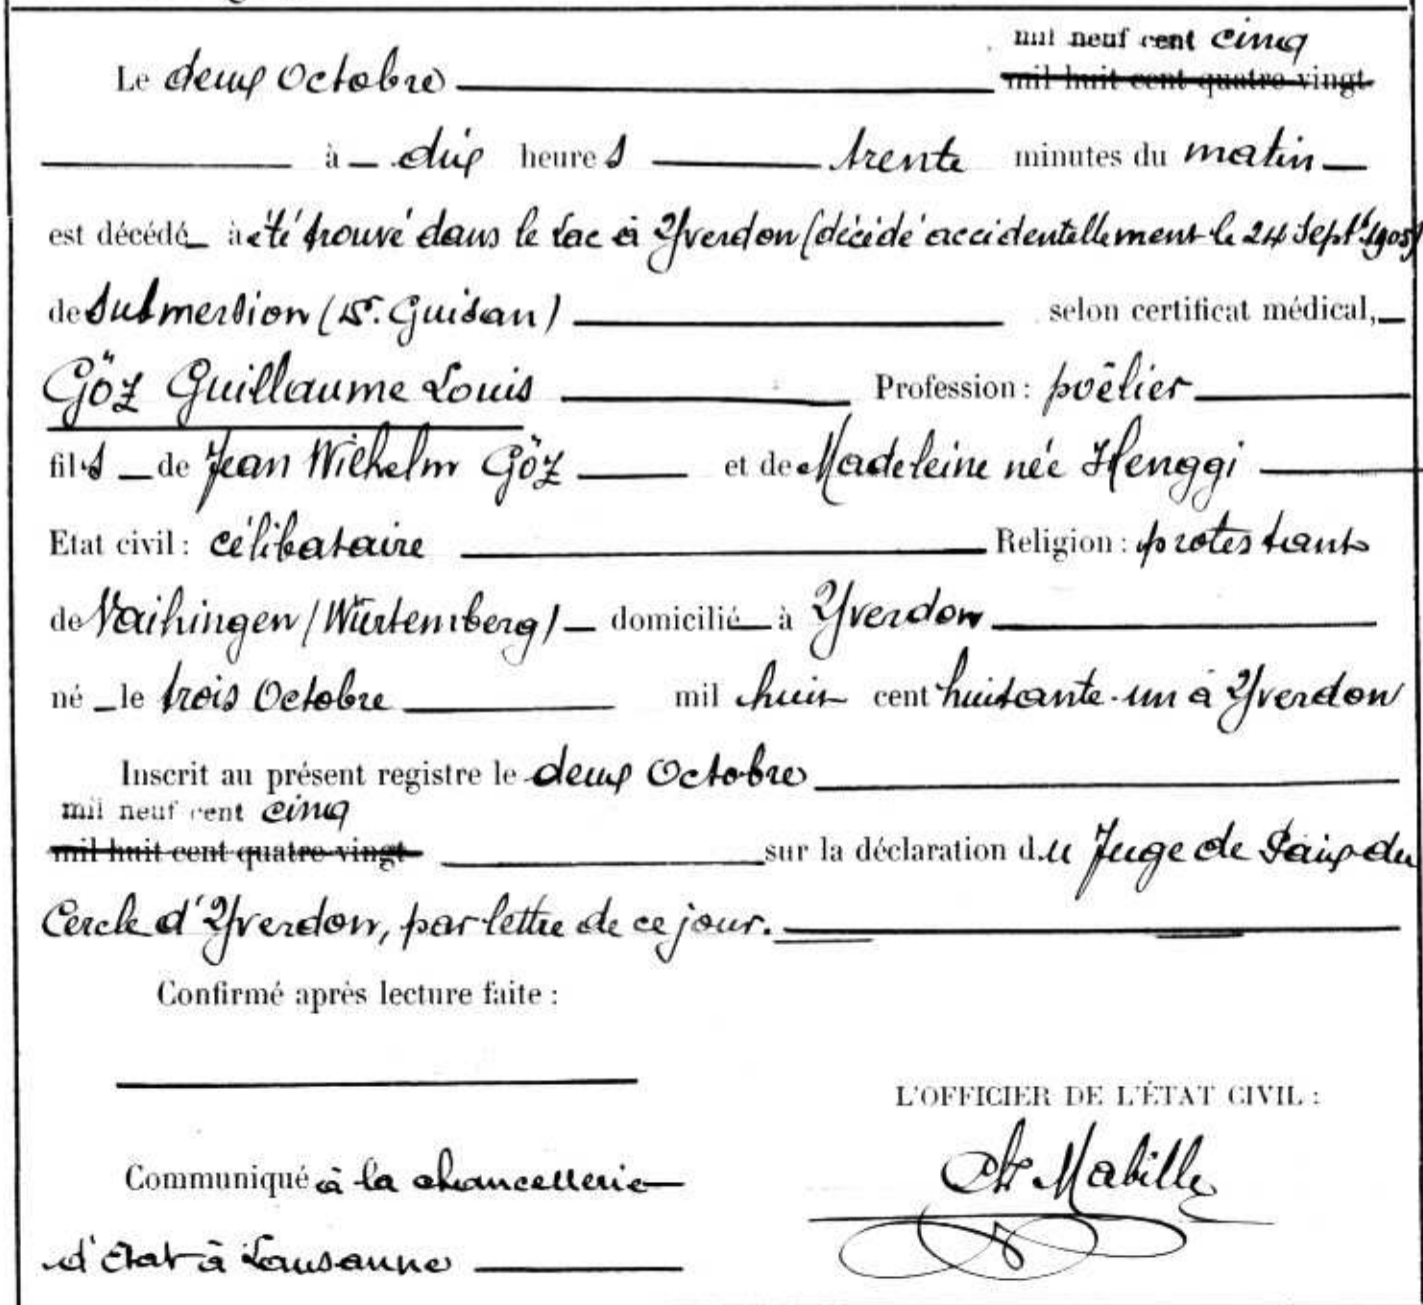 mil neuf cent cinq
Le deux Octobre mil huit cent quatre-vingt
à dix heures trente minutes du matin
est décédé à été trouvé dans le Lac à Yverdon (décédé accidentellement le 24 Septb. 1905)
de Submersion (Dr. Guisan) selon certificat médical,
Göz Guillaume Louis Profession : poêlier
fils de Jean Wilhelm Göz et de Madeleine née Henggi
Etat civil : célibataire Religion : protestant
de Vaihingen (Würtemberg) domicilié à Yverdon
né le trois Octobre mil huit cent huitante-un à Yverdon
Inscrit au présent registre le deux Octobre
mil neuf cent cinq
mil huit cent quatre-vingt sur la déclaration du Juge de Paix du
Cercle d'Yverdon, par lettre de ce jour.
Confirmé après lecture faite :
L'OFFICIER DE L'ÉTAT CIVIL :
Communiqué à la chancellerie
d'Etat à Lausanne
Ch. Mabille